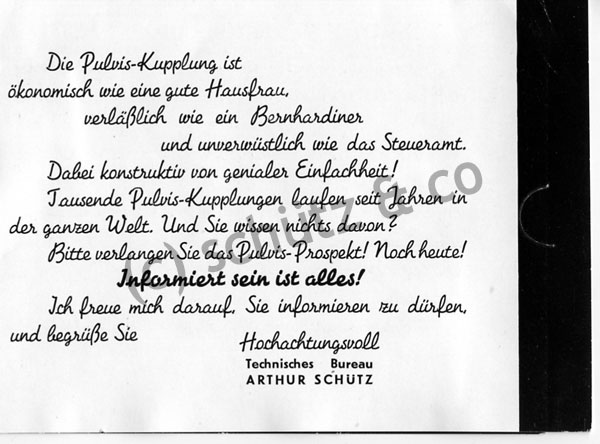 Die Pulvis-Kupplung ist
ökonomisch wie eine gute Hausfrau,
verläßlich wie ein Bernhardiner
und unverwüstlich wie das Steueramt.
Dabei konstruktiv von genialer Einfachheit!
Tausende Pulvis-Kupplungen laufen seit Jahren in
der ganzen Welt. Und Sie wissen nichts davon?
Bitte verlangen Sie das Pulvis-Prospekt! Noch heute!
Informiert sein ist alles!
Ich freue mich darauf, Sie informieren zu dürfen,
und begrüße Sie
Hochachtungsvoll
Technisches Bureau
ARTHUR SCHÜTZ
(c) schütz & co